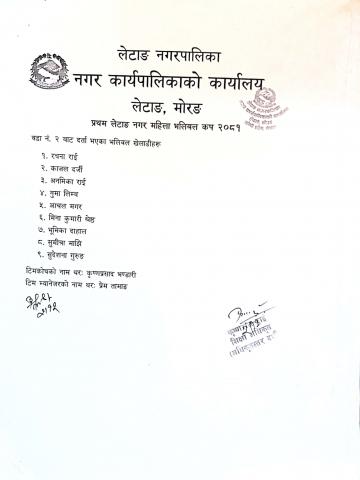 लेटाङ नगरपालिका
नगर कार्यपालिकाको कार्यालय
लेटाङ, मोरङ
प्रथम लेटाङ नगर महिला भलिबल कप २०८१
वडा नं. २ बाट दर्ता भएका भलिबल खेलाडीहरू
१. रचना राई
२. काजल दर्जी
३. अनमिका राई
४. गुमा लिम्बु
५. आचल मगर
६. मिना कुमारी श्रेष्ठ
७. भूमिका दाहाल
८. सुबीना माझि
९. सुदेशना गुरुङ
टिमकोचको नाम थरः कृष्णप्रसाद भण्डारी
टिम म्यानेजरको नाम थरः प्रेम तामाङ
शिक्षा अधिकृत